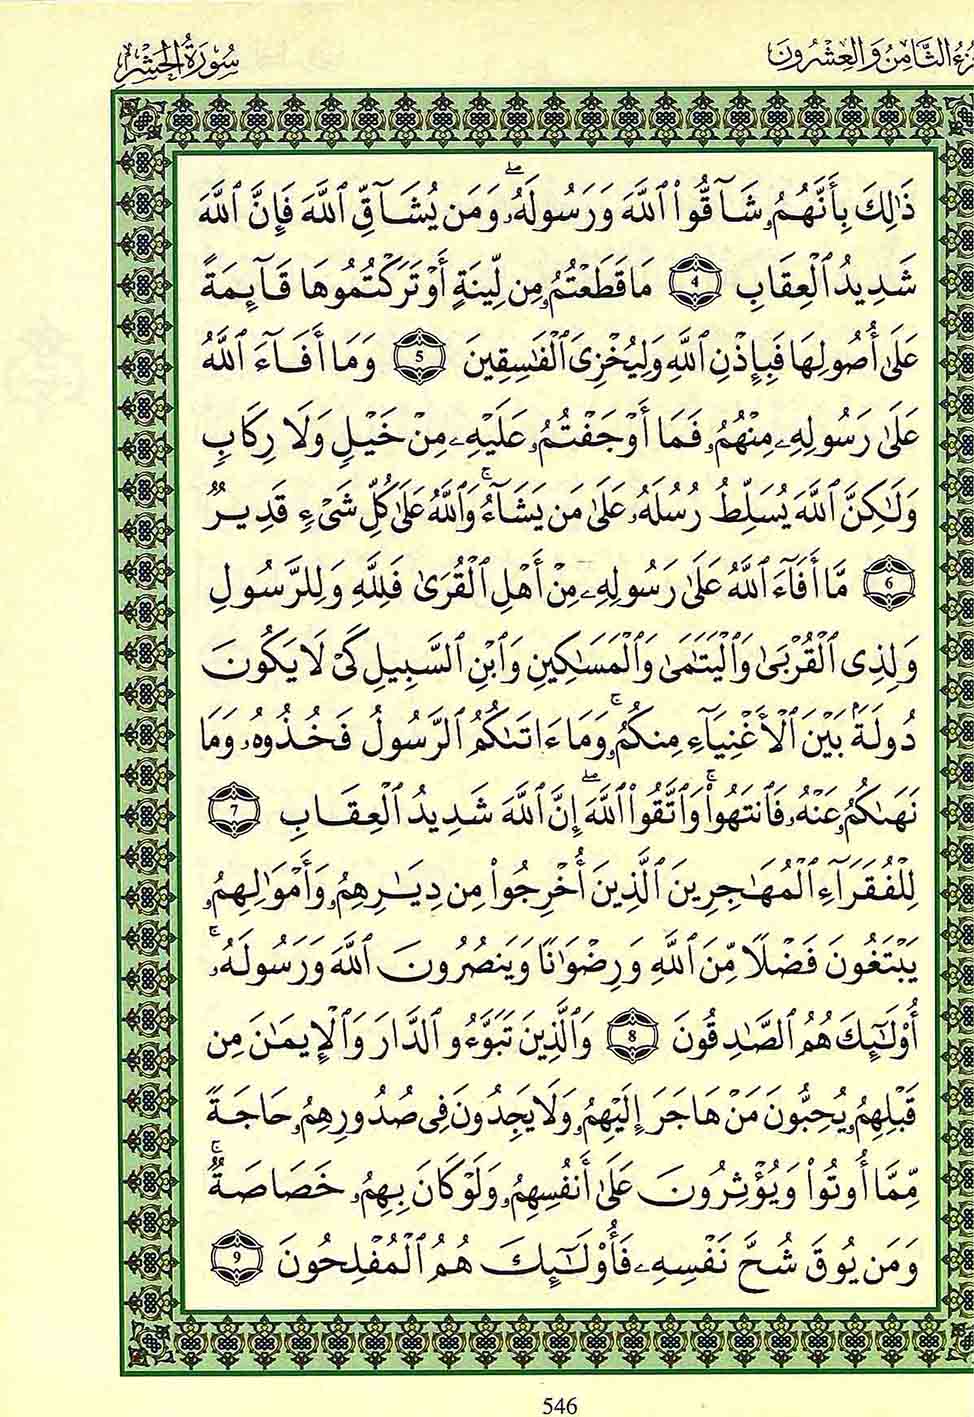 الجزء الثامن والعشرون
سورة الحشر
ذَٰلِكَ بِأَنَّهُمُۥ شَآقُّوا۟ ٱللَّهَ وَرَسُولَهُۥ ۖ وَمَن يُشَآقِّ ٱللَّهَ فَإِنَّ ٱللَّهَ
شَدِيدُ ٱلْعِقَابِ 4 مَا قَطَعْتُمُۥ مِن لِّينَةٍ أَوْ تَرَكْتُمُوهَا قَآئِمَةً
عَلَىٰٓ أُصُولِهَا فَبِإِذْنِ ٱللَّهِ وَلِيُخْزِىَ ٱلْفَـٰسِقِينَ 5 وَمَآ أَفَآءَ ٱللَّهُ
عَلَىٰ رَسُولِهِۦ مِنْهُمُۥ فَمَآ أَوْجَفْتُمُۥ عَلَيْهِۦ مِنْ خَيْلٍ وَلَا رِكَابٍ
وَلَـٰكِنَّ ٱللَّهَ يُسَلِّطُ رُسُلَهُۥ عَلَىٰ مَن يَشَآءُ ۚ وَٱللَّهُ عَلَىٰ كُلِّ شَىْءٍ قَدِيرٌ
6 مَّآ أَفَآءَ ٱللَّهُ عَلَىٰ رَسُولِهِۦ مِنْ أَهْلِ ٱلْقُرَىٰ فَلِلَّهِ وَلِلرَّسُولِ
وَلِذِى ٱلْقُرْبَىٰ وَٱلْيَتَـٰمَىٰ وَٱلْمَسَـٰكِينِ وَٱبْنِ ٱلسَّبِيلِ كَىْ لَا يَكُونَ
دُولَةَۢ بَيْنَ ٱلْأَغْنِيَآءِ مِنكُمُۥ ۚ وَمَآ ءَاتَىٰكُمُ ٱلرَّسُولُ فَخُذُوهُۥ وَمَا
نَهَىٰكُمُۥ عَنْهُۥ فَٱنتَهُوا۟ ۚ وَٱتَّقُوا۟ ٱللَّهَ ۖ إِنَّ ٱللَّهَ شَدِيدُ ٱلْعِقَابِ 7
لِلْفُقَرَآءِ ٱلْمُهَـٰجِرِينَ ٱلَّذِينَ أُخْرِجُوا۟ مِن دِيَـٰرِهِمُۥ وَأَمْوَٰلِهِمُۥ
يَبْتَغُونَ فَضْلًا مِّنَ ٱللَّهِ وَرِضْوَٰنًا وَيَنصُرُونَ ٱللَّهَ وَرَسُولَهُۥ ۚ
أُو۟لَـٰٓئِكَ هُمُ ٱلصَّـٰدِقُونَ 8 وَٱلَّذِينَ تَبَوَّءُو ٱلدَّارَ وَٱلْإِيمَـٰنَ مِن
قَبْلِهِمُۥ يُحِبُّونَ مَنْ هَاجَرَ إِلَيْهِمُۥ وَلَا يَجِدُونَ فِى صُدُورِهِمُۥ حَاجَةً
مِّمَّآ أُوتُوا۟ وَيُؤْثِرُونَ عَلَىٰٓ أَنفُسِهِمُۥ وَلَوْ كَانَ بِهِمُۥ خَصَاصَةٌ ۚ
وَمَن يُوقَ شُحَّ نَفْسِهِۦ فَأُو۟لَـٰٓئِكَ هُمُ ٱلْمُفْلِحُونَ 9
546